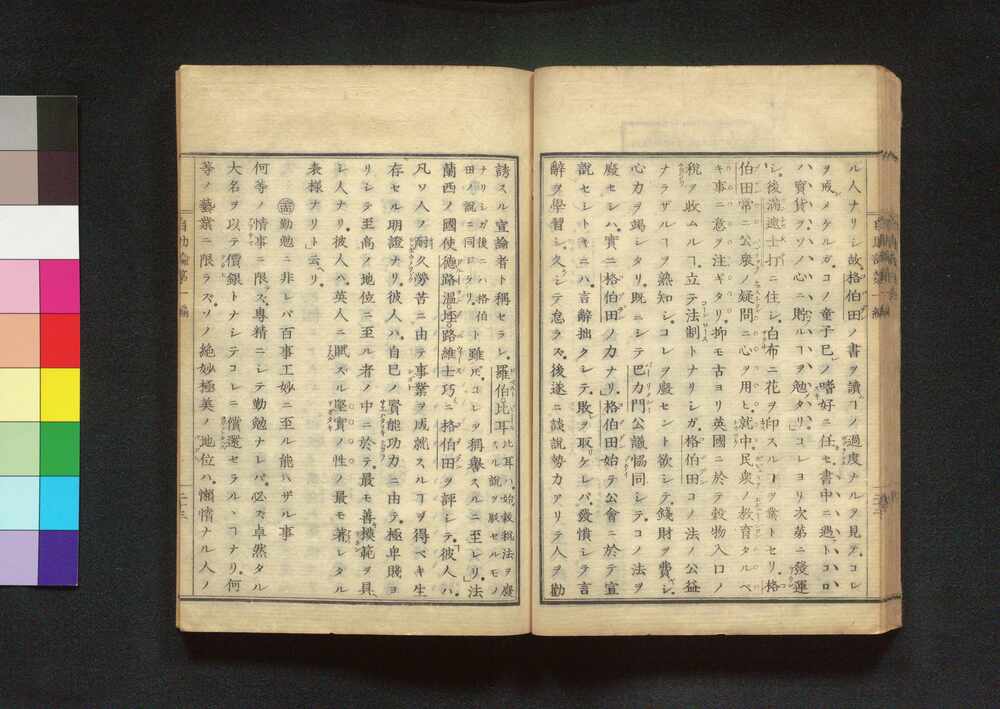 ル人ナリシ故格伯田ノ書ヲ讀ヿノ過度ナルヲ見テコレ
ヲ戒メケルガコノ童子已レノ嗜好ニ任セ書中ニ遇トコロ
ハ寳貨ヲハノ心ニ貯ルヿヲ勉タリ」コレヨリ次第ニ發運
シ後滿遮士打ニ住シ白布ニ花ヲ印スルヿヲ業トセリ格
伯田常ニ公衆ノ疑問ニ心ヲ用ヒ就中民衆ノ教育タルベ
キ事ニ意ヲ注ギタリ抑モ古ヨリ英國ニ於テ穀物入口ノ
税ヲ收ムルヿ立テ法制トナリシガ格伯田コノ法ノ公益
ナラザルヿヲ熟知シコレヲ廢セント欲シテ錢財ヲ費シ
心力ヲ竭シタリ既ニシテ巴力門公議協同シテコノ法ヲ
廢セシハ實ニ格伯田ノ力ナリ」格伯田始テ公會ニ於テ宣
説セシトキニハ言辭拙クシテ敗ヲ取ケレバ發憤シテ言
辭ヲ學習シ久シテ怠ラズ後遂ニ談説勢力アリテ人ヲ勸
誘スル宣諭者ト稱セラレ羅伯比耳比耳ハ始穀税法ヲ廢スル説ヲ駁セルモノ
ナリシガ後ニハ格伯田ノ説ニ同ゼラリト雖𪜈コレヲ稱譽スルニ至レリ法
蘭西ノ國使德路溫坯路維士巧ニ格伯田ヲ評シテ「彼人ハ
凡ソ人ノ耐久勞苦ニ由テ事業ヲ成就スルヿヲ得ベキ生
存セル明證ナリ彼人ハ自己ノ賢能功力ニ由テ極卑賤ヨ
リシテ至高ノ地位ニ至ル者ノ中ニ於テ最モ善模範ヲ具
シ人ナリ彼人ハ英人ニ賦スル堅實ノ性ノ最モ著レタル
表樣ナリ」ト云リ
勤勉ニ非レバ百事工妙ニ至ル能ハザル事
何等ノ情事ニ限ラズ專精ニシテ勤勉ナレバ必ズ卓然タル
大名ヲ以テ價銀トナシテコレニ償還セラルヽヿナリ何
等ノ藝業ニ限ラズソノ絶妙極美ノ地位ハ懶惰ナル人ノ
自助論第一編
二十三